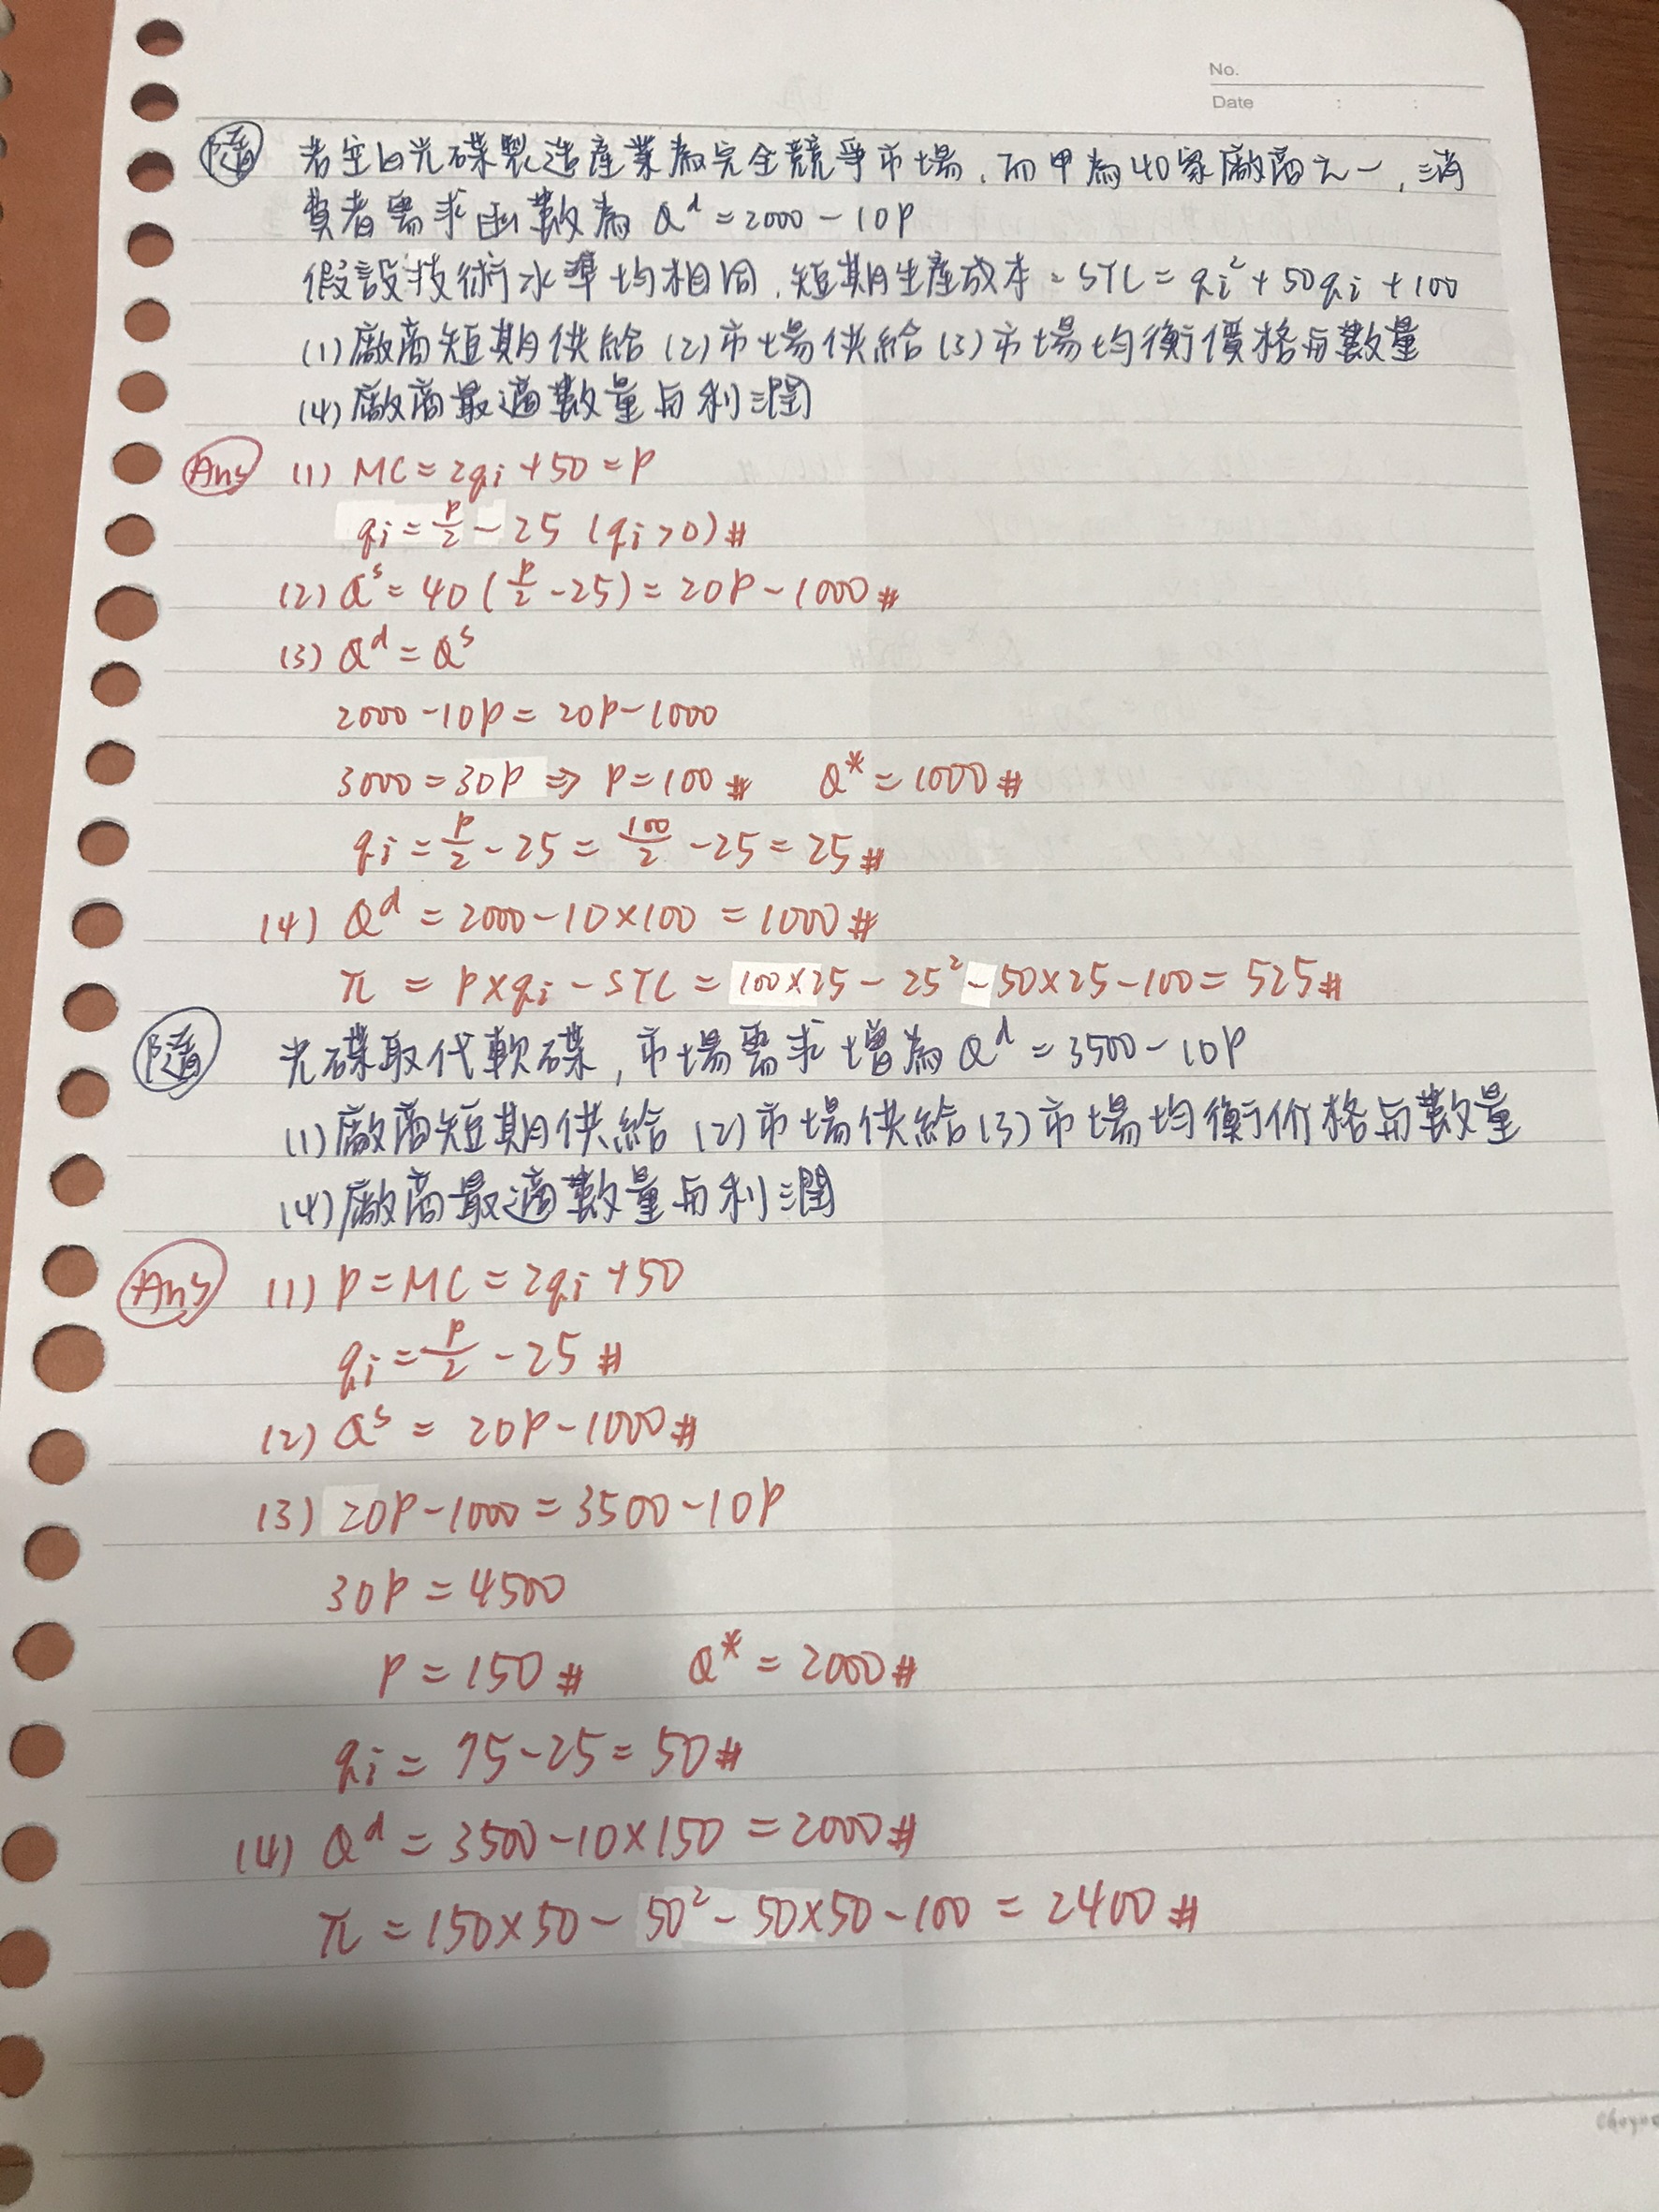 No.
Date : :
隨 若空白光碟製造產業為完全競爭市場，而甲為40家廠商之一，消
費者需求函數為 Q^d = 2000 - 10P
假設技術水準均相同，短期生產成本 = STC = qi² + 50qi + 100
(1)廠商短期供給 (2)市場供給 (3)市場均衡價格与數量
(4)廠商最適數量与利潤
Ans (1) MC = 2qi + 50 = P
qi = P/2 - 25 (qi > 0) #
(2) Q^s = 40 (P/2 - 25) = 20P - 1000 #
(3) Q^d = Q^s
2000 - 10P = 20P - 1000
3000 = 30P ⇒ P = 100 # Q* = 1000 #
qi = P/2 - 25 = 100/2 - 25 = 25 #
(4) Q^d = 2000 - 10×100 = 1000 #
π = P×qi - STC = 100×25 - 25² - 50×25 - 100 = 525 #
隨 光碟取代軟碟，市場需求增為 Q^d = 3500 - 10P
(1)廠商短期供給 (2)市場供給 (3)市場均衡价格与數量
(4)廠商最適數量与利潤
Ans (1) P = MC = 2qi + 50
qi = P/2 - 25 #
(2) Q^s = 20P - 1000 #
(3) 20P - 1000 = 3500 - 10P
30P = 4500
P = 150 # Q* = 2000 #
qi = 75 - 25 = 50 #
(4) Q^d = 3500 - 10×150 = 2000 #
π = 150×50 - 50² - 50×50 - 100 = 2400 #